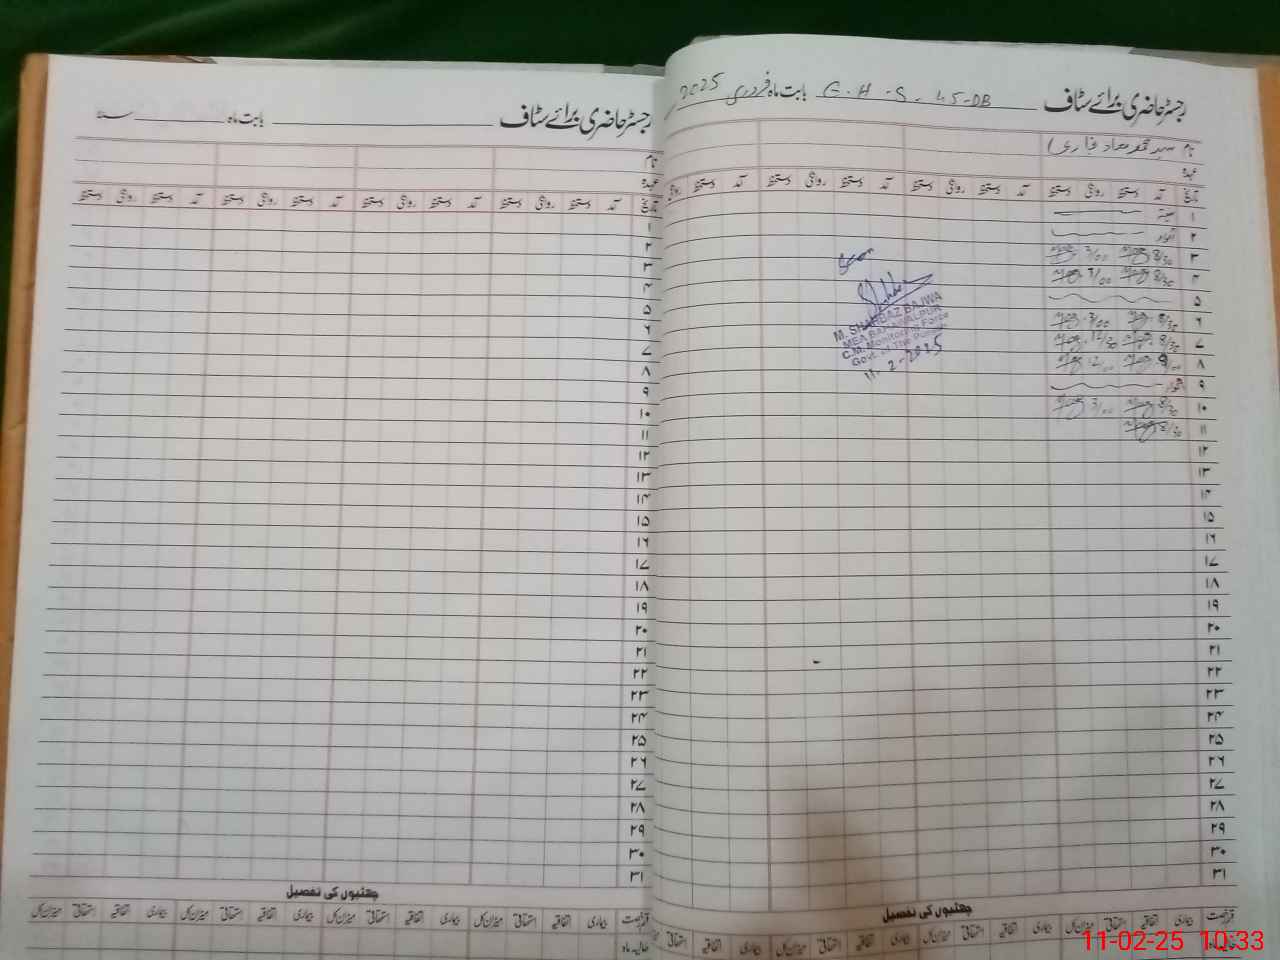 رجسٹر حاضری برائے سٹاف G.H.S. 45-DB بابت ماہ فروری 2025
نام سید محمد
عہدہ
تاریخ آمد دستخط روانگی دستخط آمد دستخط روانگی دستخط آمد دستخط روانگی دستخط آمد دستخط روانگی
۱ ہفتہ
۲ اتوار
۳ 8/30 3/00
۴ 8/30 3/00
۵
۶ 8/30 3/00
۷ 8/30 12/30
۸ 9/00 2/00
۹ اتوار
۱۰ 8/30 3/00
۱۱ 8/30
۱۲
۱۳
۱۴
۱۵
۱۶
۱۷
۱۸
۱۹
۲۰
۲۱
۲۲
۲۳
۲۴
۲۵
۲۶
۲۷
۲۸
۲۹
۳۰
۳۱
M. SHAHBAZ BAJWA
MEA BAHAWALPUR
C.M. Monitoring Force
Govt. of The Punjab
11-2-2025
چھٹیوں کی تفصیل
قسم رخصت بیماری اتفاقیہ استحقاقی میزان کل بیماری اتفاقیہ استحقاقی میزان کل بیماری اتفاقیہ استحقاقی میزان کل بیماری اتفاقیہ استحقاقی
حالیہ ماہ
رجسٹر حاضری برائے سٹاف بابت ماہ سنہ
نام
عہدہ
تاریخ آمد دستخط روانگی دستخط آمد دستخط روانگی دستخط آمد دستخط روانگی دستخط آمد دستخط روانگی دستخط
۱
۲
۳
۴
۵
۶
۷
۸
۹
۱۰
۱۱
۱۲
۱۳
۱۴
۱۵
۱۶
۱۷
۱۸
۱۹
۲۰
۲۱
۲۲
۲۳
۲۴
۲۵
۲۶
۲۷
۲۸
۲۹
۳۰
۳۱
چھٹیوں کی تفصیل
قسم رخصت بیماری اتفاقیہ استحقاقی میزان کل بیماری اتفاقیہ استحقاقی میزان کل بیماری اتفاقیہ استحقاقی میزان کل بیماری اتفاقیہ استحقاقی میزان کل
حالیہ ماہ
11-02-25 10:33